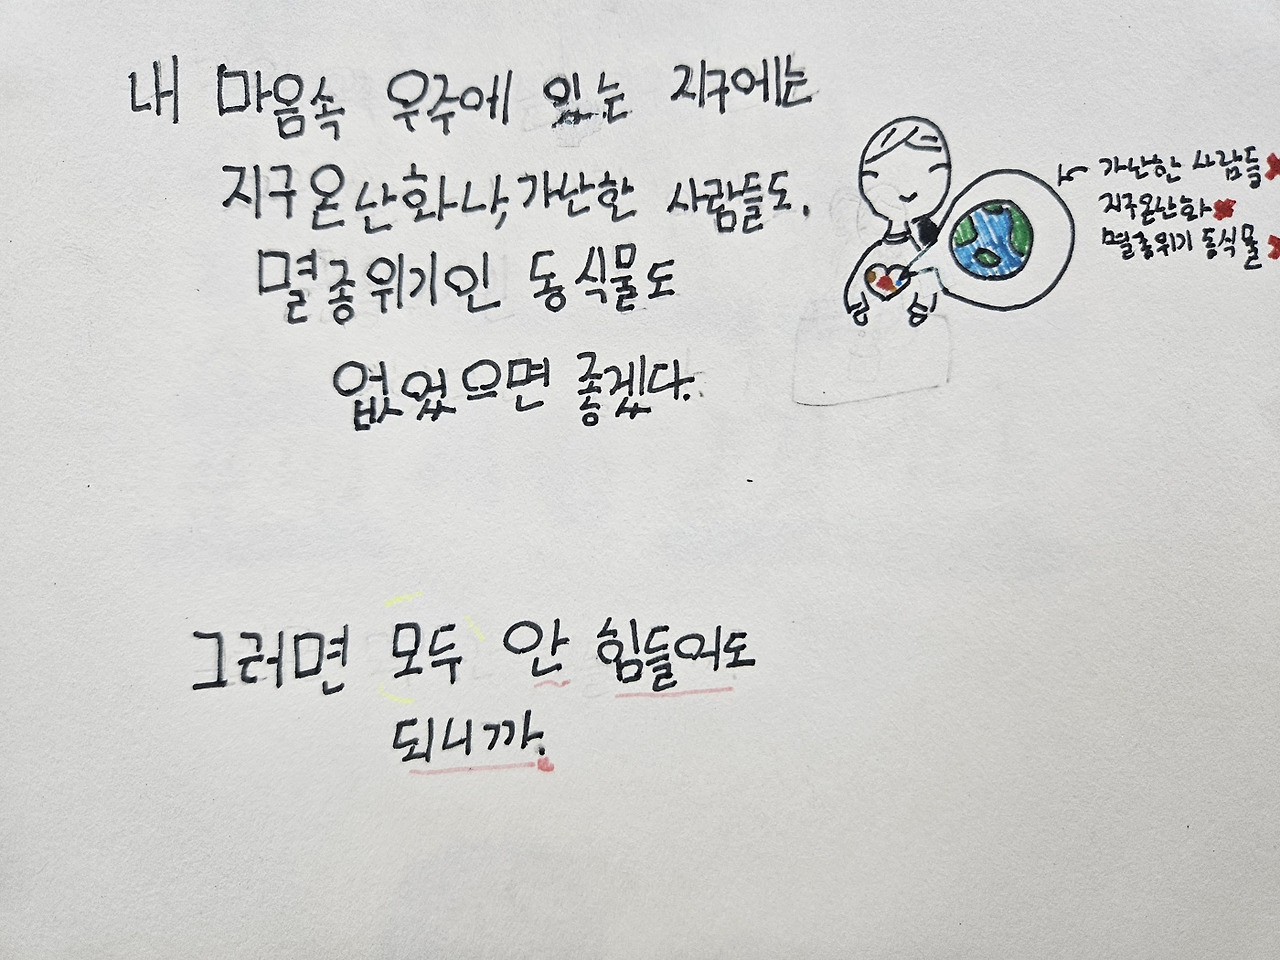 내 마음속 우주에 있는 지구에는
지구온산화나, 가난한 사람들도,
멸종위기인 동식물도
없었으면 좋겠다.
가난한 사람들
지구온산화
멸종위기 동식물
그러면 모두 안 힘들어도
되니까.